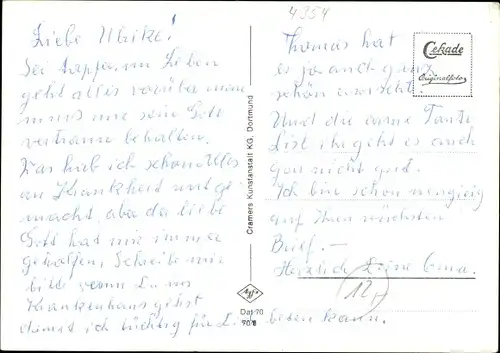 4354
Liebe Ulrike!
Sei tapfer, im Leben
geht alles vorüber man
muss nur sein Gott
vertrauen behalten.
Was hab ich schon Alles
an Krankheit mitge
macht, aber der liebe
Gott hat mir immer
geholfen, Schreibe mir
bitte wenn Du ins
Krankenhaus gehst
damit ich tüchtig für Dich beten kann.
Thomas hat
es ja auch ganz
schön erwischt.
Und die arme Tante
Lisl ihr geht es auch
gar nicht gut.
Ich bin schon neugierig
auf Ihren nächsten
Brief. –
Herzlich Deine Oma.
12,-
Cekade
Originalfoto
Cramers Kunstanstalt KG, Dortmund
Agfa
Dat 70
70 B